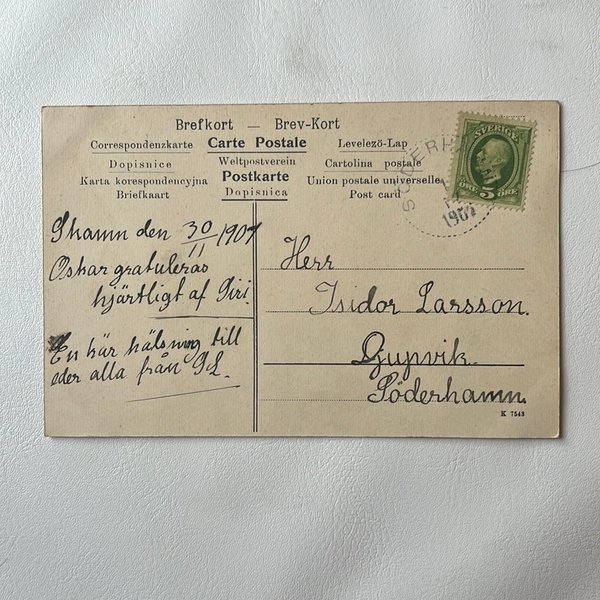 Brefkort — Brev-Kort
Correspondenzkarte Carte Postale Levelezö-Lap
Dopisnice Weltpostverein Cartolina postale
Karta korespondencyjna Postkarte Union postale universelle
Briefkaart Dopisnica Post card
SVERIGE
5
ÖRE ÖRE
SÖDERH
1907
Shamn den 30/11 1907
Oskar gratuleras
hjärtligt af Siri.
En kär hälsning till
eder alla från
Herr
Isidor Larsson.
Gupvik.
Söderhamn.
K 7543